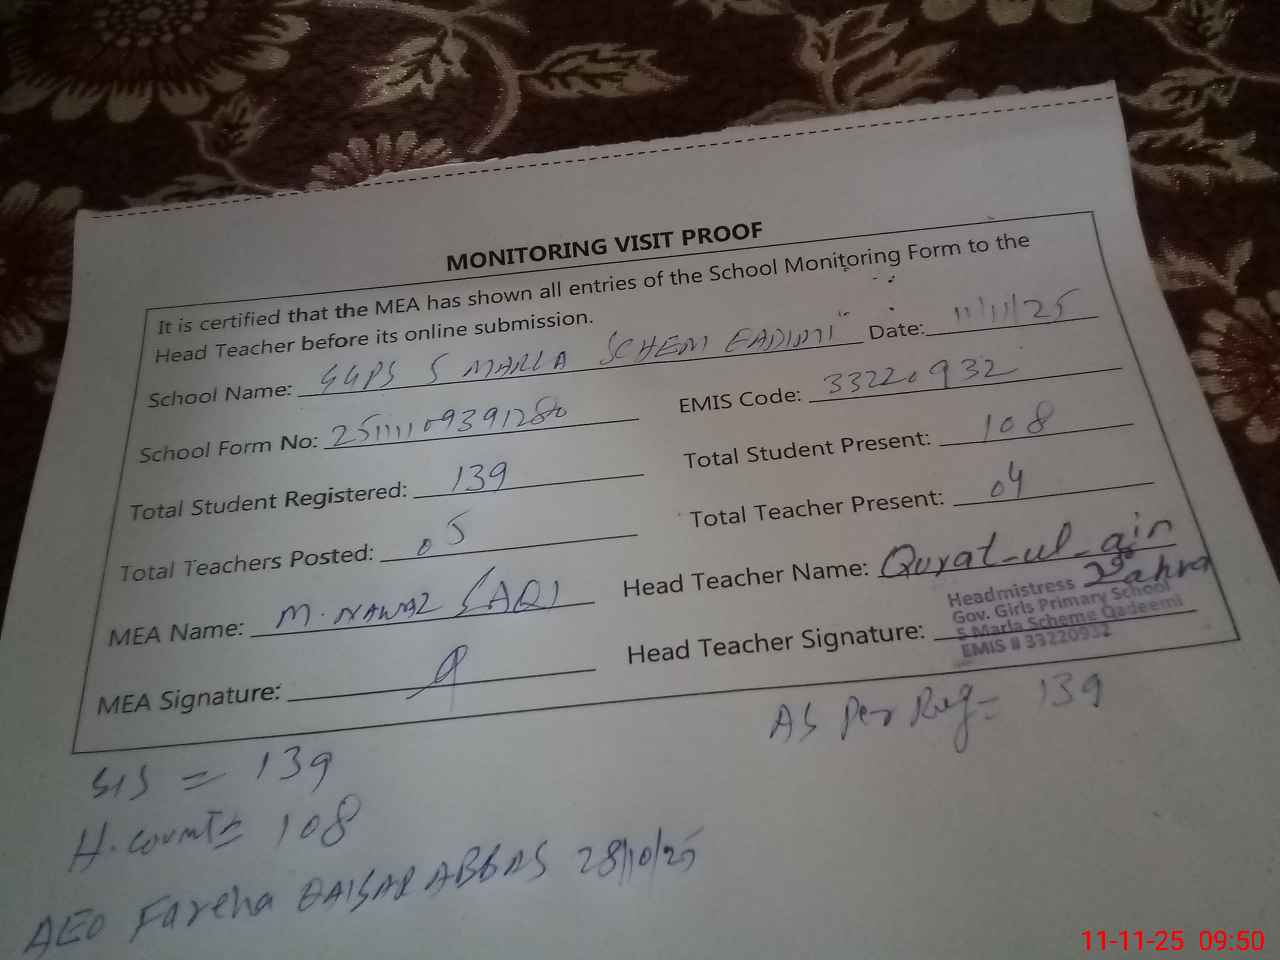 MONITORING VISIT PROOF
It is certified that the MEA has shown all entries of the School Monitoring Form to the
Head Teacher before its online submission.
School Name: GGPS 5 MARLA SCHEM Date: 11/11/25
School Form No: EMIS Code: 33220932
Total Student Registered: 139 Total Student Present: 108
Total Teachers Posted: 05 Total Teacher Present: 04
MEA Name: M. NAWAZ Head Teacher Name: Qurat-ul-ain
Zahra
MEA Signature: Head Teacher Signature:
Headmistress
Gov. Girls Primary School
5 Marla Scheme Qadeemi
EMIS # 33220932
As Per Reg = 139
SIS = 139
H. count = 108
AEO Fareha QAISAR ABBAS 28/10/25
11-11-25 09:50